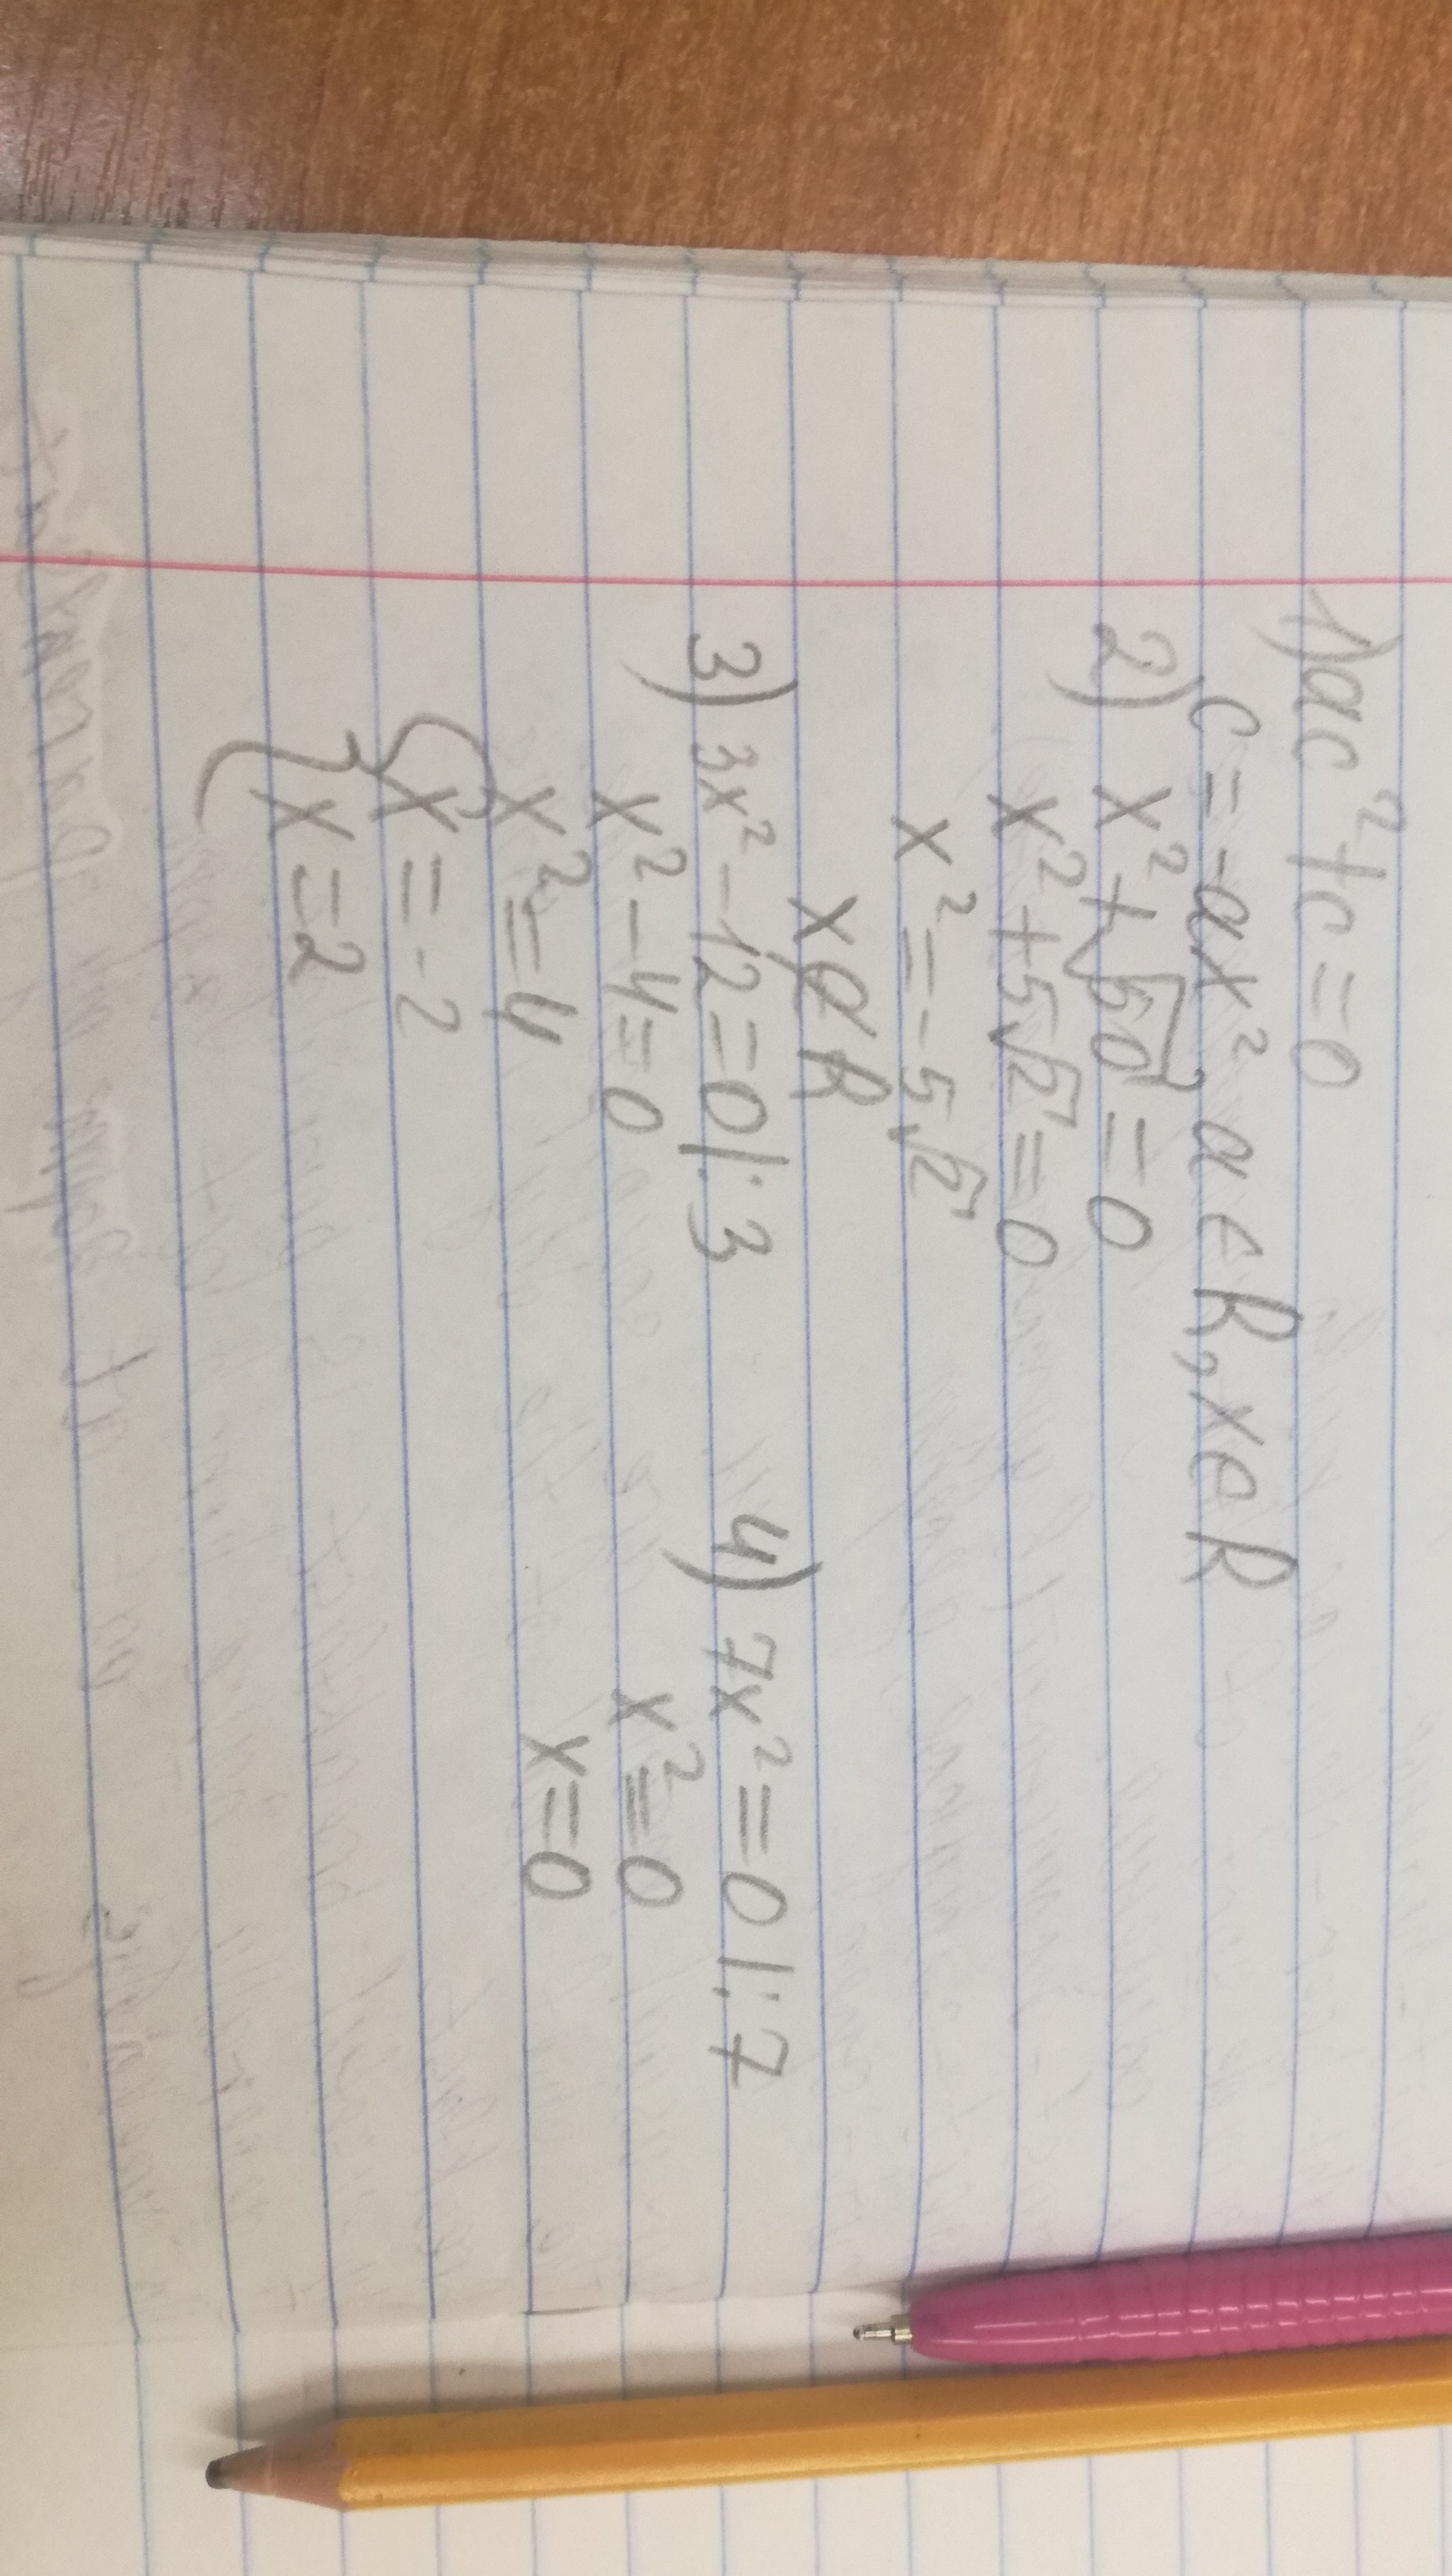 1) ac²+c=0
c=-ax², a ∈ R, x∈R
2) x²+√50=0
x²+5√2=0
x²=-5√2
x∉R
3) 3x²-12=0 |:3
x²-4=0
x²=4
x=-2
x=2
4) 7x²=0 |:7
x²=0
x=0